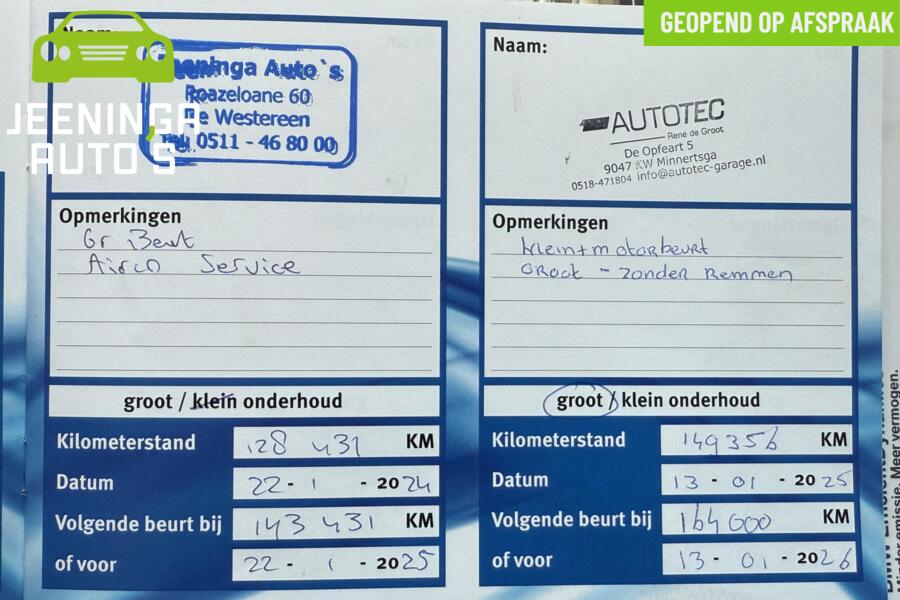 GEOPEND OP AFSPRAAK
JEENINGA
AUTO'S
Naam:
Jeeninga Auto`s
Roazeloane 60
De Westereen
Tel. 0511 - 46 80 00
Opmerkingen
Gr Beurt
Airco Service
groot / klein onderhoud
Kilometerstand 128 431 KM
Datum 22 - 1 - 2024
Volgende beurt bij 143 431 KM
of voor 22 - 1 - 2025
Naam:
AUTOTEC
René de Groot
De Opfeart 5
9047 KW Minnertsga
0518-471804 info@autotec-garage.nl
Opmerkingen
klein+motorbeurt
Groot - zonder Remmen
groot / klein onderhoud
Kilometerstand 149356 KM
Datum 13 - 01 - 2025
Volgende beurt bij 164000 KM
of voor 13 - 01 - 2026
Minder emissie. Meer vermogen.